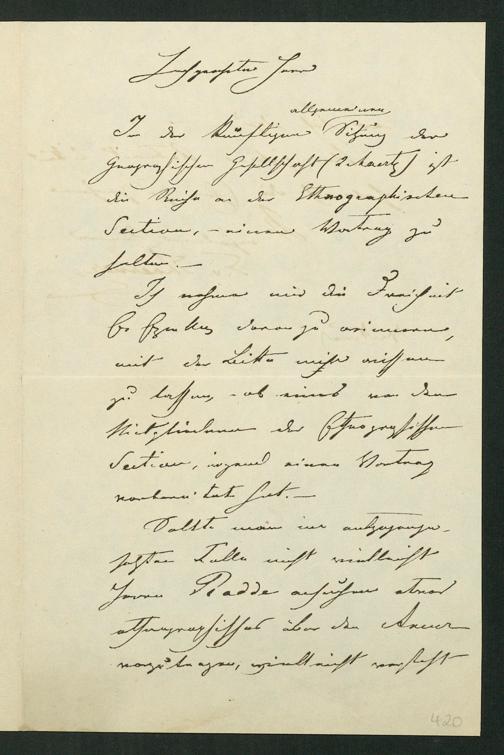 Hochgeehrter Herr
allgemeinen
In der künftigen Sitzung der
Geographischen Gesellschaft (2 Maertz) ist
die Reihe an der Ethnographischen
Section, – einen Vortrag zu
halten. —
Ich nehme mir die Freiheit
daran zu erinnern,
mit der Bitte mich wissen
zu lassen, – ob eines von den
Mitgliedern der Ethnographischen
Section, irgend einen Vortrag
vorbereitet hat. —
Sollte man im entgegenge-
setzten Falle nicht vielleicht
Herrn Radde ersuchen etwas
ethnographisches über den Amur
vorzutragen, vielleicht versteht
420